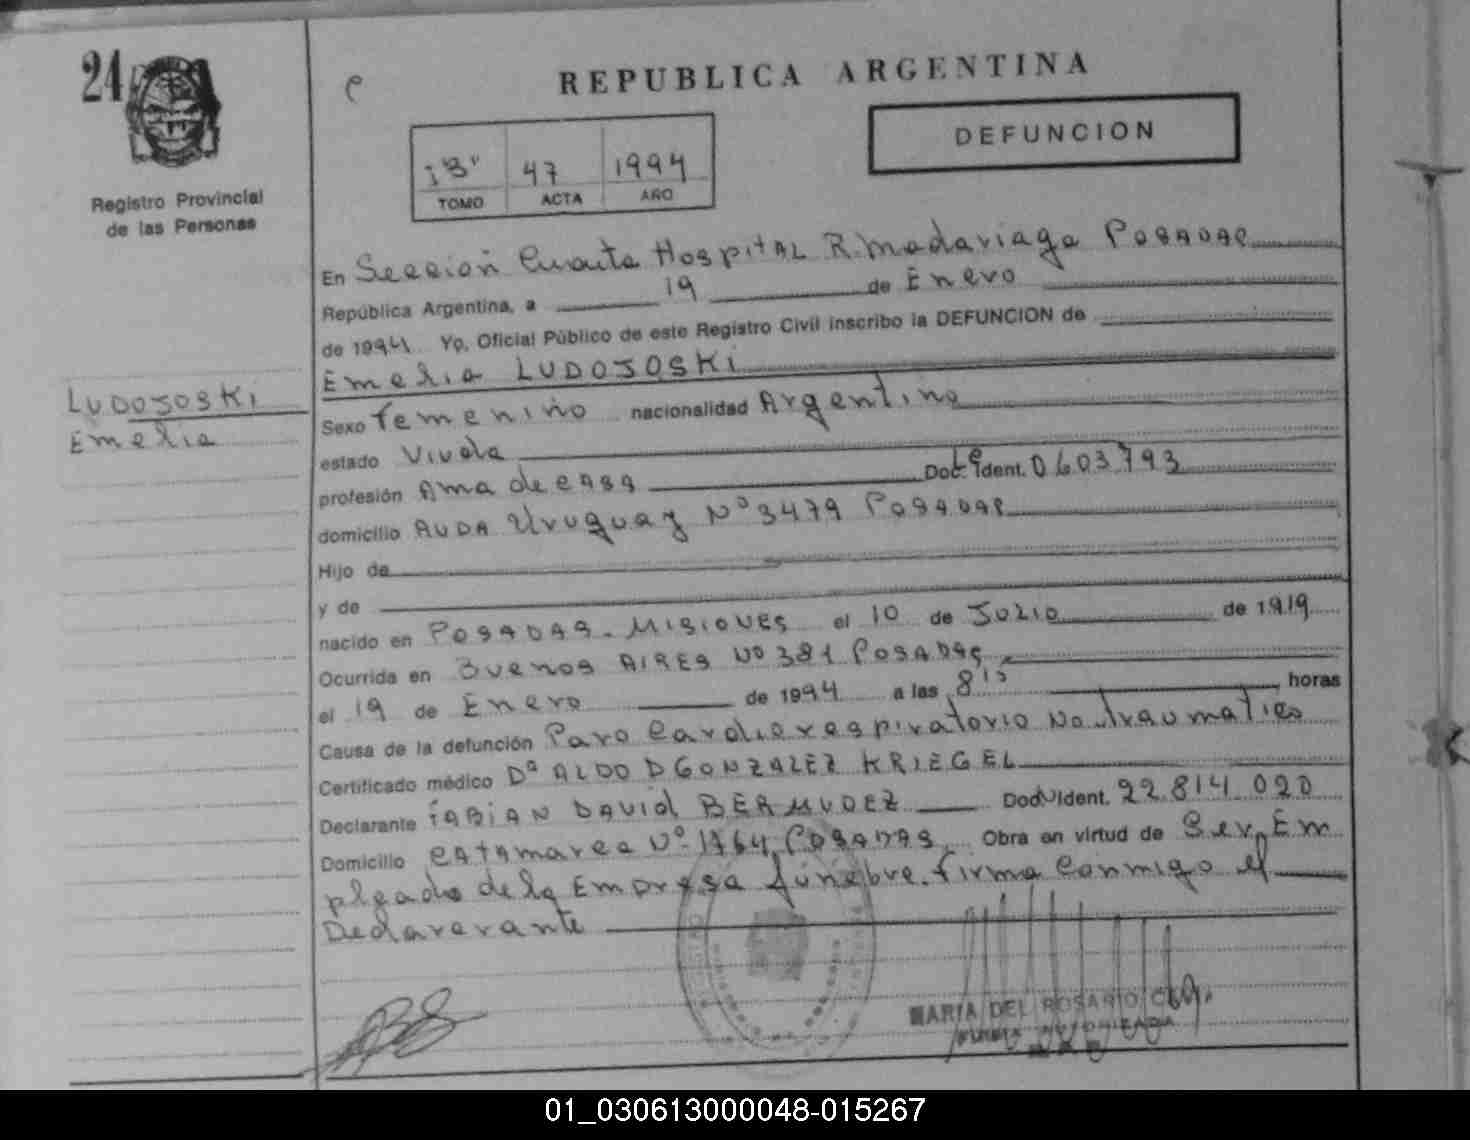 24
REPUBLICA ARGENTINA
DEFUNCION
1"B" 47 1994
TOMO ACTA AÑO
Registro Provincial
de las Personas
LUDOJOSKI
Emelia
En Sección Cuarta Hospital R. Madariaga Posadas
República Argentina, a 19 de Enero
de 1994 Yo, Oficial Público de este Registro Civil inscribo la DEFUNCION de
Emelia LUDOJOSKI
Sexo Femenino nacionalidad Argentina
estado Viuda
profesión Ama de casa Doc. Ident. 0603793
domicilio AVDA Uruguay Nº 3479 Posadas
Hijo de
y de
nacido en Posadas - Misiones el 10 de Julio de 1919
Ocurrida en Buenos Aires Nº 381 Posadas
el 19 de Enero de 1994 a las 8 15 horas
Causa de la defunción Paro Cardiorespiratorio No traumatico
Certificado médico Dº ALDO D GONZALEZ KRIEGEL
Declarante FABIAN DAVID BERMUDEZ Doc. Ident. 22.814.020
Domicilio Catamarca Nº 1764 Posadas Obra en virtud de Ser Em
pleado de la Empresa fúnebre. Firma Conmigo el
Declarerante
MARIA DEL ROSARIO
01_030613000048-015267